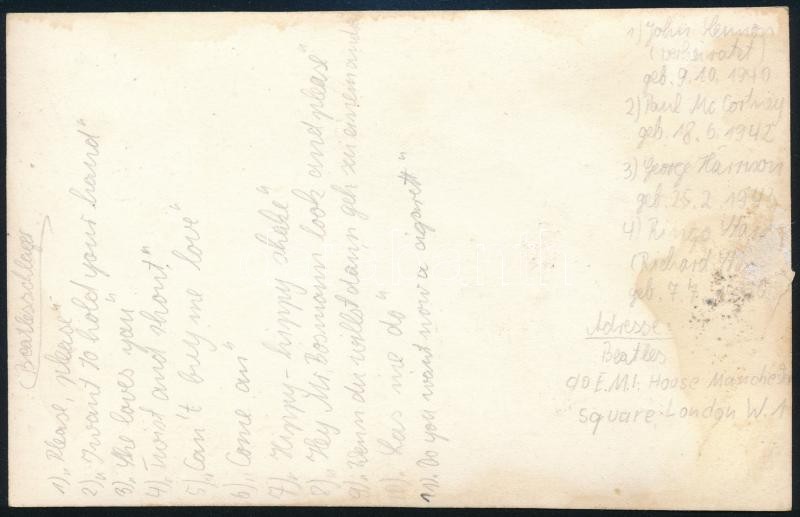 (Beatlesschlager
1) „Please, please"
2) „I want to hold your hand"
3) „She loves you"
4) „Twist and shout"
5) „Can't buy me love"
6) „Come an"
7) „Hippy-hippy shake"
8) „Hey Mr. Bosmann look and please"
9) „Wenn du willst dann geh zu einem and
10) „Las me do"
11) „Do you want now a cigarett"
1) John Lennon
(verheiratet)
geb. 9. 10. 1940
2) Paul Mc Cortney
geb. 18. 6. 1942
3) George Harrison
geb. 25. 2. 1943
4) Ringo
(Richard
geb. 7. 7.
Adresse
Beatles
c/o E.M.I. House Manchest
Square London W. 1